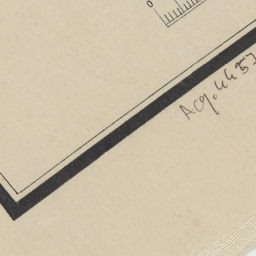 0
Acq. 4457